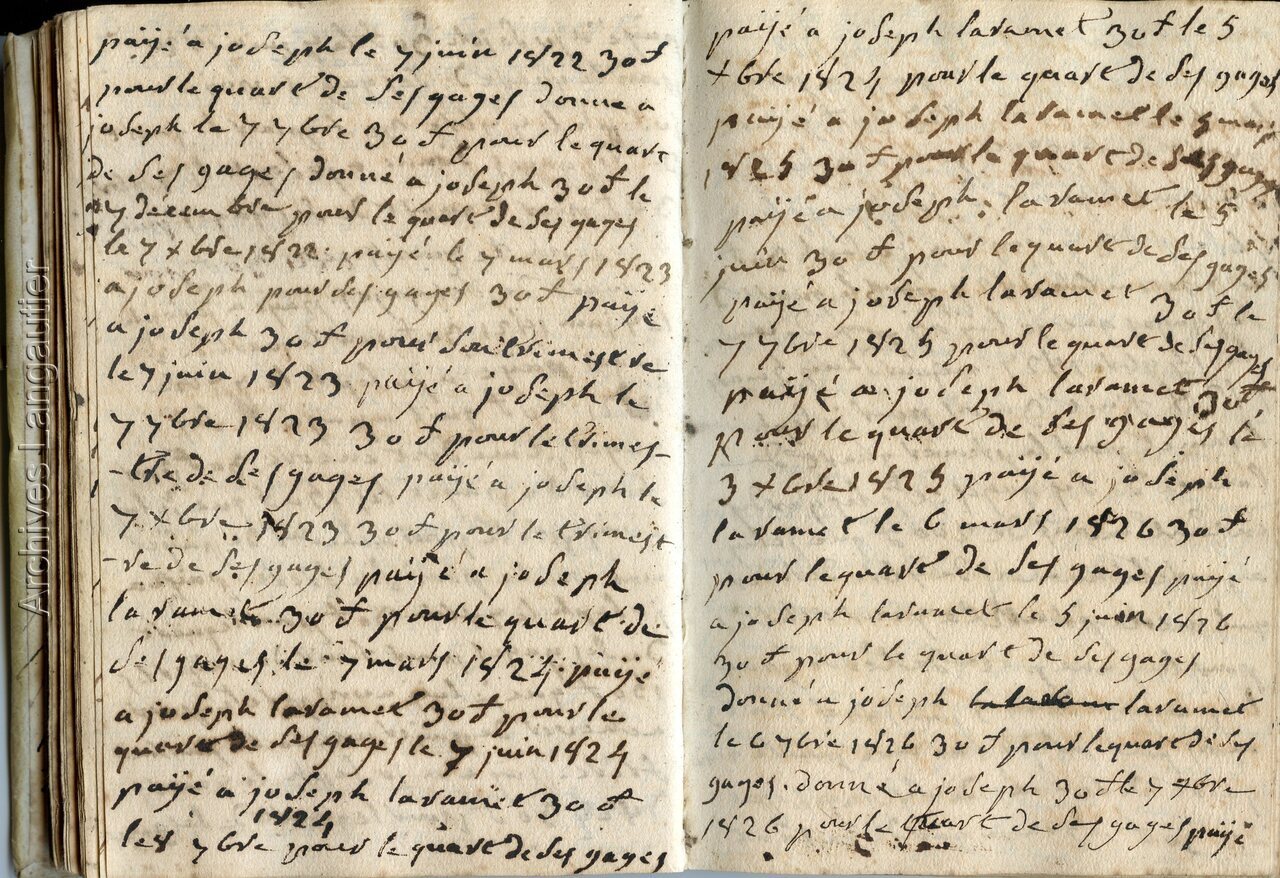 paijé a joseph le 7 juin 1822 30 ₶
pour le quart de ses gages donné a
joseph le 7 7bre 30 ₶ pour le quart
de ses gages donné a joseph 30 ₶ le
7 décembre pour le quart de ses gages
le 7 xbre 1822 paijé le 7 mars 1823
a joseph pour ses gages 30 ₶ paijé
a joseph 30 ₶ pour son trimestre
le 7 juin 1823 paijé a joseph le
7 7bre 1823 30 ₶ pour le trimes-
-tre de ses gages paijé a joseph le
7 xbre 1823 30 ₶ pour le trimest
-re de ses gages paijé a joseph
laramet 30 ₶ pour le quart de
ses gages le 7 mars 1824 paijé
a joseph laramet 30 ₶ pour le
quart de ses gages le 7 juin 1824
paijé a joseph laramet 30 ₶
1824
le 8 7bre pour le quart de ses gages
paijé a joseph laramet 30 ₶ le 5
xbre 1824 pour le quart de ses gages
paijé a joseph laramet le 5 mars
1825 30 ₶ pour le quart de ses gages
paijé a joseph laramet le 5
juin 30 ₶ pour le quart de ses gages
paijé a joseph laramet 30 ₶ le
7 7bre 1825 pour le quart de ses gages
paijé a joseph laramet 30 ₶
pour le quart de ses gages le
3 xbre 1825 paijé a joseph
laramet le 6 mars 1826 30 ₶
pour le quart de ses gages paijé
a joseph laramet le 5 juin 1826
30 ₶ pour le quart de ses gages
donné a joseph laramet
le 6 7bre 1826 30 ₶ pour le quart de ses
gages. donné a joseph 30 ₶ le 7 xbre
1826 pour le quart de ses gages paijé
Archives Langautier